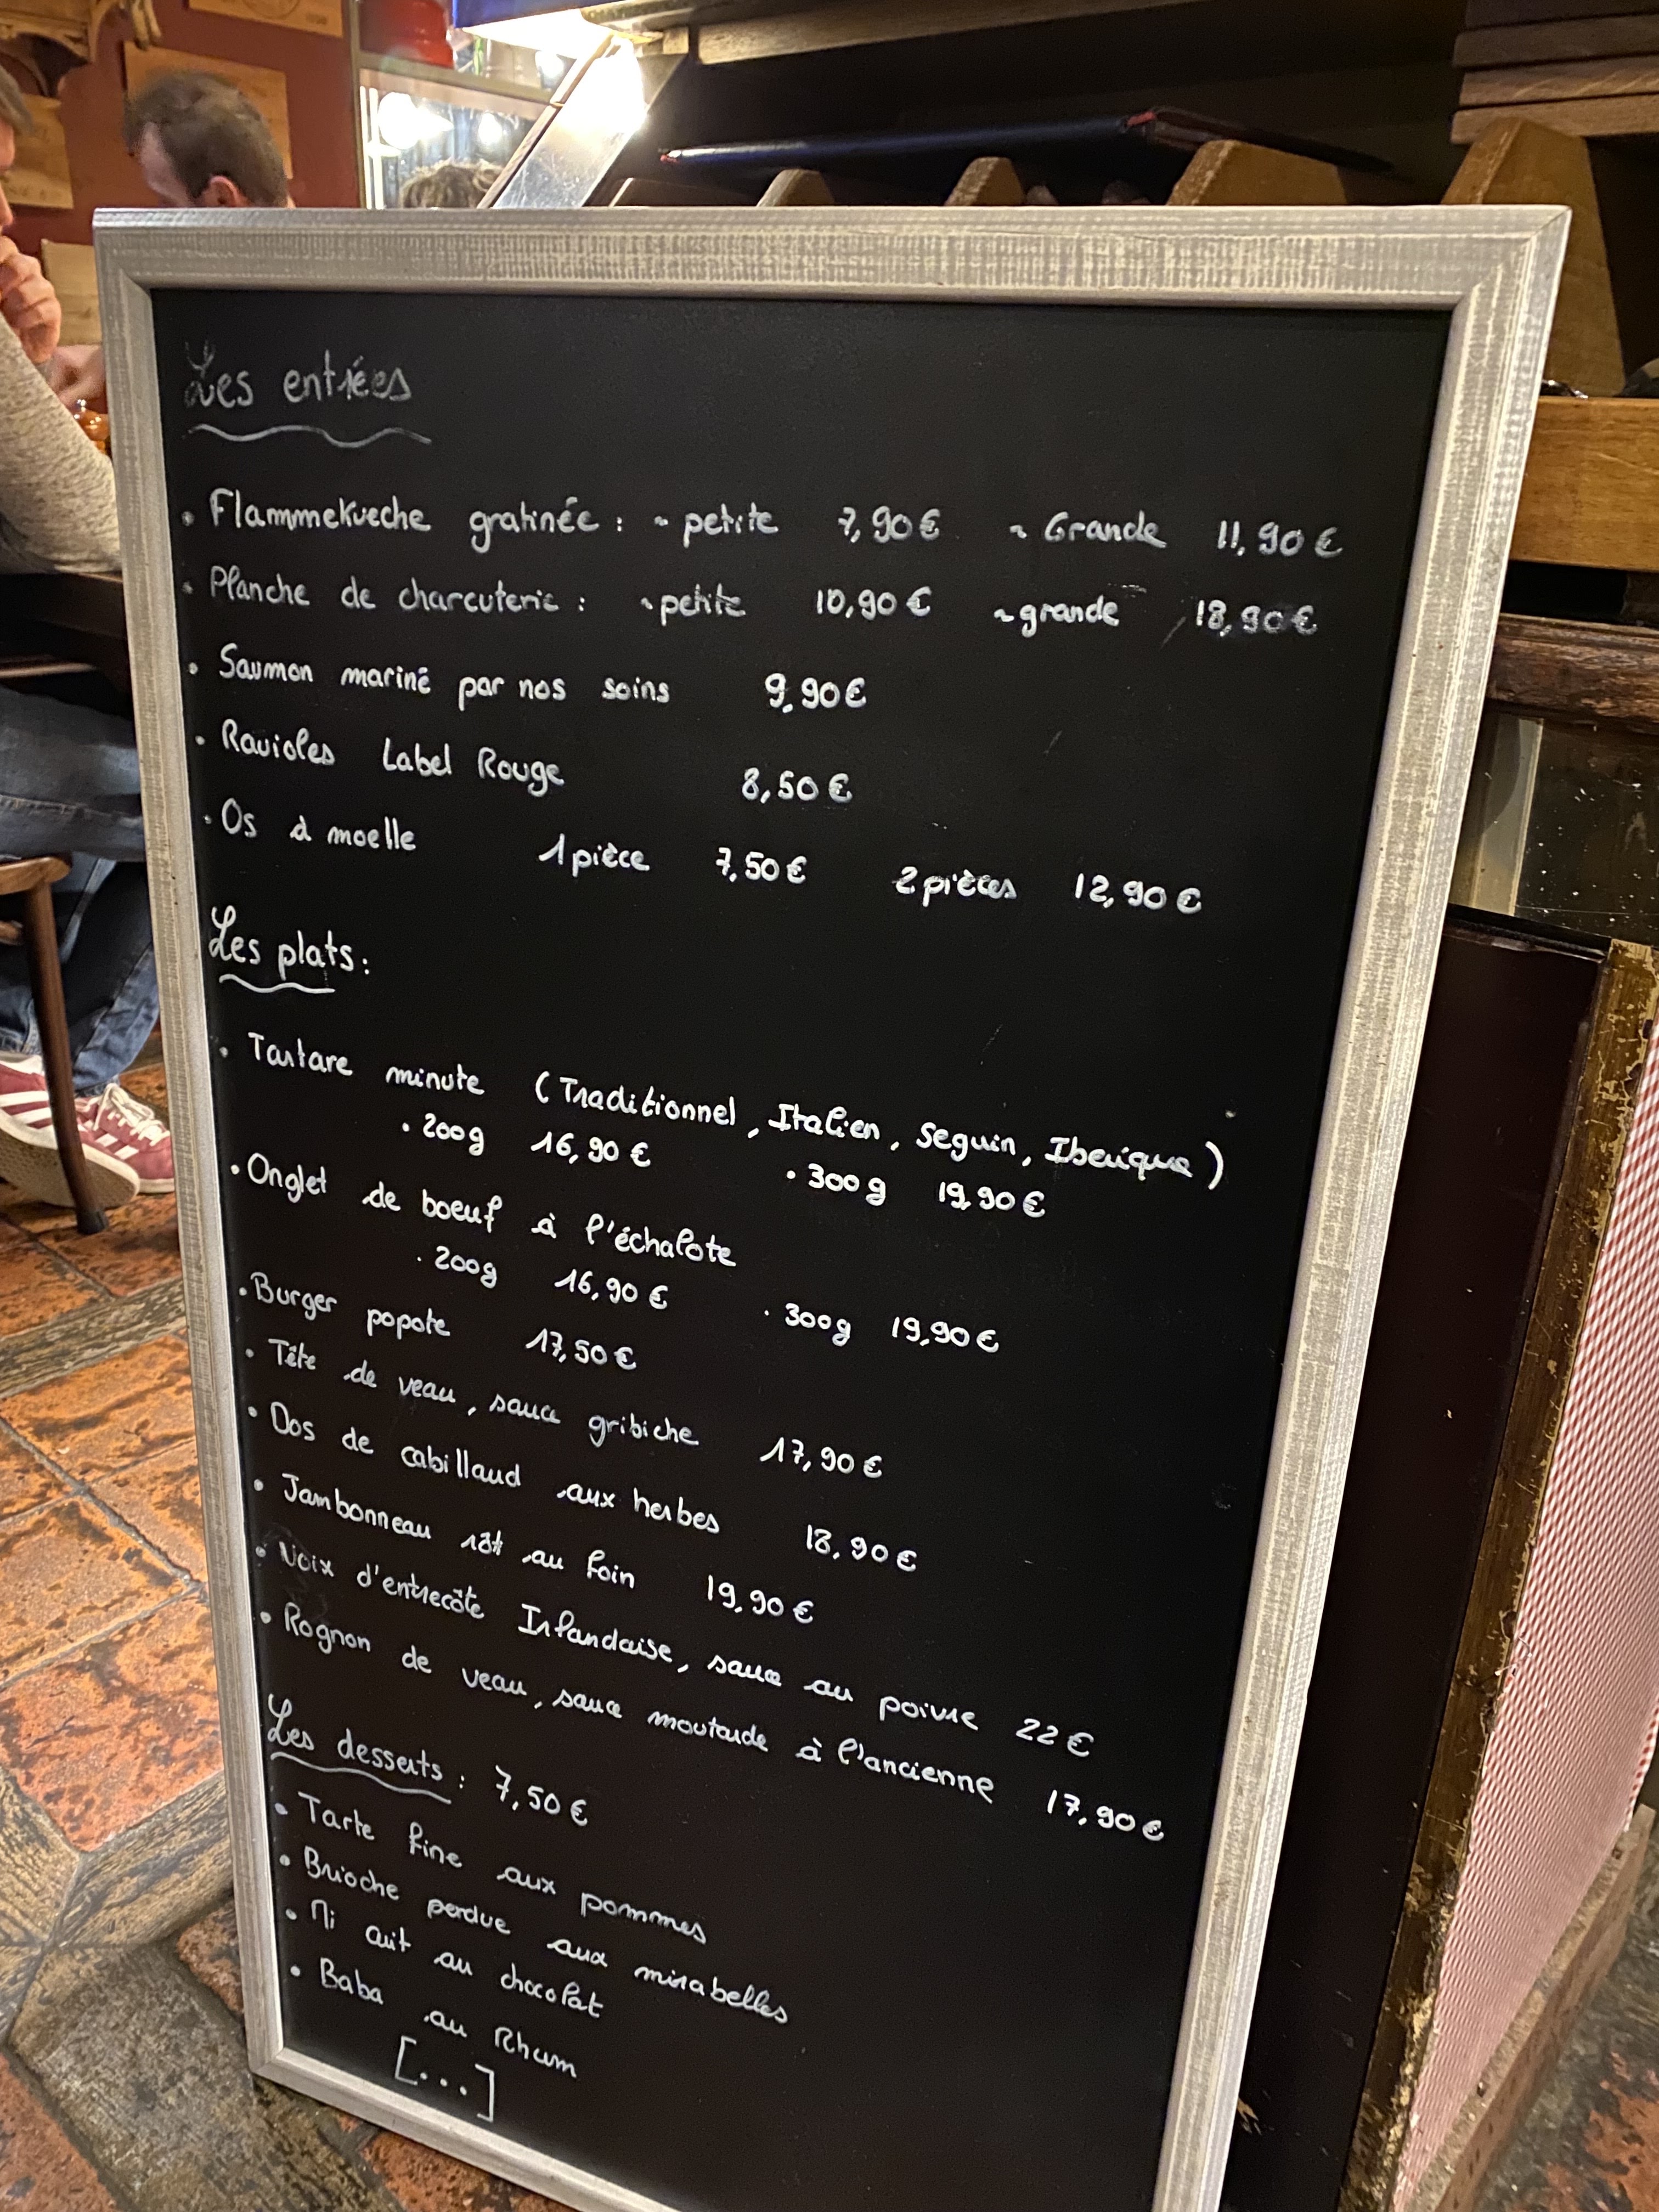 Les entrées
• Flammekueche gratinée : ~ petite 7,90 € ~ Grande 11,90 €
• Planche de charcuterie : ~ petite 10,90 € ~ grande 18,90 €
• Saumon mariné par nos soins 9,90 €
• Ravioles Label Rouge 8,50 €
• Os à moelle 1 pièce 7,50 € 2 pièces 12,90 €
Les plats :
• Tartare minute (Traditionnel, Italien, Seguin, Iberique)
• 200g 16,90 € • 300g 19,90 €
• Onglet de boeuf à l'échalote
• 200g 16,90 € • 300g 19,90 €
• Burger popote 17,50 €
• Tête de veau, sauce gribiche 17,90 €
• Dos de cabillaud aux herbes 18,90 €
• Jambonneau rôt au foin 19,90 €
• Noix d'entrecôte Irlandaise, sauce au poivre 22 €
• Rognon de veau, sauce moutarde à l'ancienne 17,90 €
Les desserts : 7,50 €
• Tarte fine aux pommes
• Brioche perdue aux mirabelles
• Mi cuit au chocolat
• Baba au Rhum
[...]